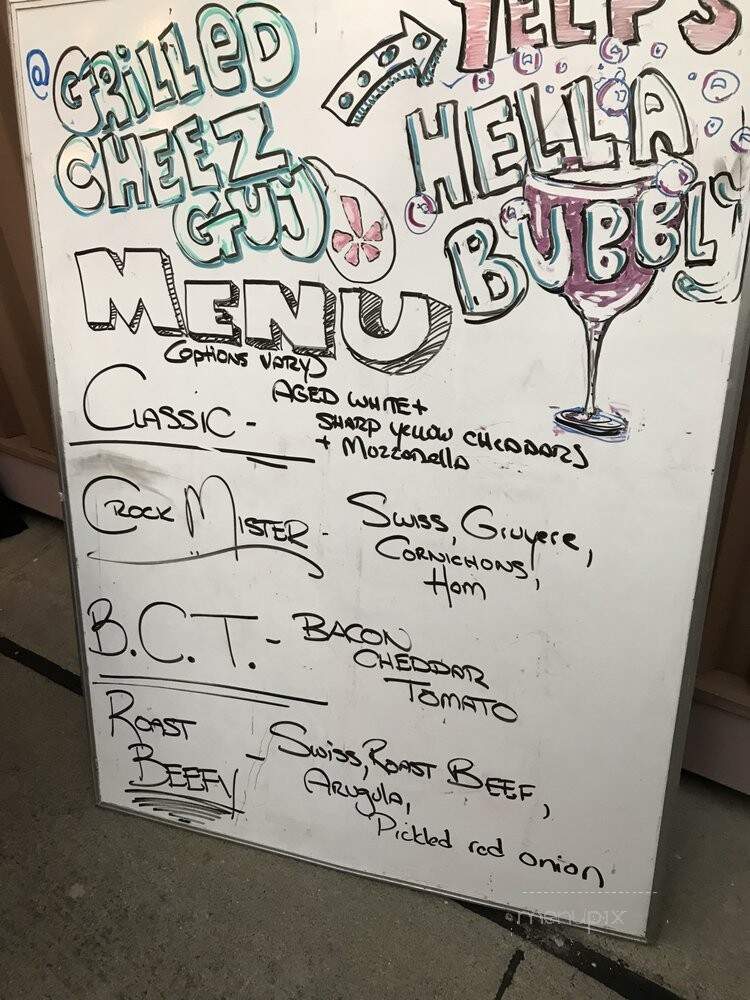 @GRILLED
CHEEZ
GUY
YELP'S
HELLA
BUBBLY
MENU
(OPTIONS VARY)
CLASSIC - AGED WHITE +
SHARP YELLOW CHEDDARS
+ Mozzarella
CROCK MISTER - SWISS, Gruyere,
CORNICHONS,
Ham
B.C.T. - BACON
CHEDDAR
TOMATO
ROAST
BEEFY - Swiss, ROAST BEEF,
Arugula,
Pickled red onion
menupix